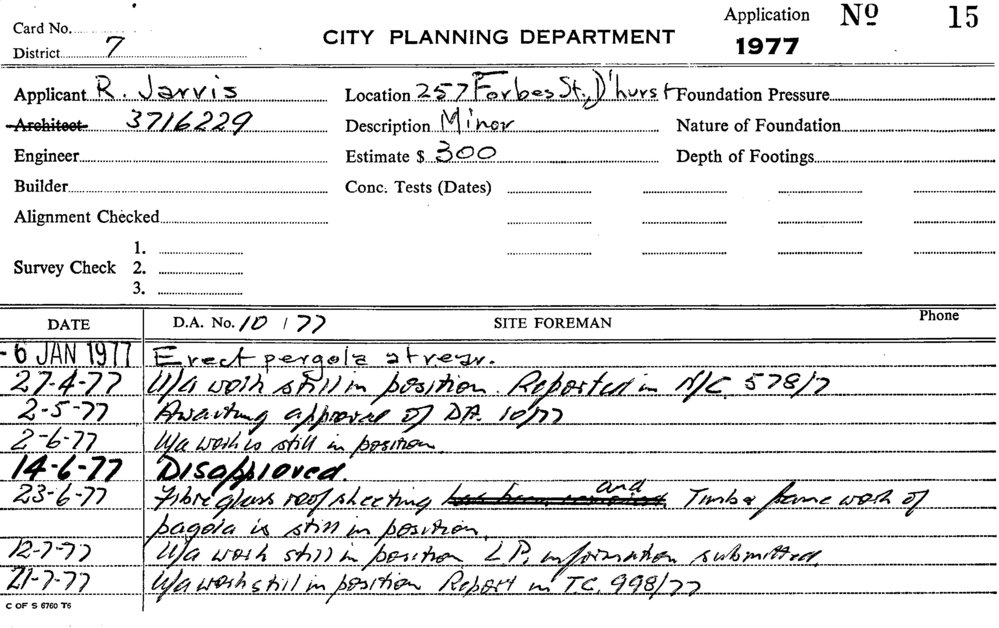 Card No.
District 7
CITY PLANNING DEPARTMENT
Application Nº 15
1977
Applicant R. Jarvis Location 257 Forbes St., D'hurst Foundation Pressure
Architect 3716229 Description Minor Nature of Foundation
Engineer Estimate $ 300 Depth of Footings
Builder Conc. Tests (Dates)
Alignment Checked
Survey Check 1.
2.
3.
DATE D.A. No. 10 / 77 SITE FOREMAN Phone
-6 JAN 1977 Erect pergola at rear.
27-4-77 U/a work still in position. Reported in N/C. 578/7
2-5-77 Awaiting approval of DA. 10/77
2-6-77 U/a work is still in position.
14-6-77 Disapproved.
23-6-77 Fibreglass roof sheeting and Timber frame work of
pagola is still in position.
12-7-77 U/a work still in position L.P. information submitted.
21-7-77 U/a work still in position Report in T.C. 998/77
C OF S 6760 T6